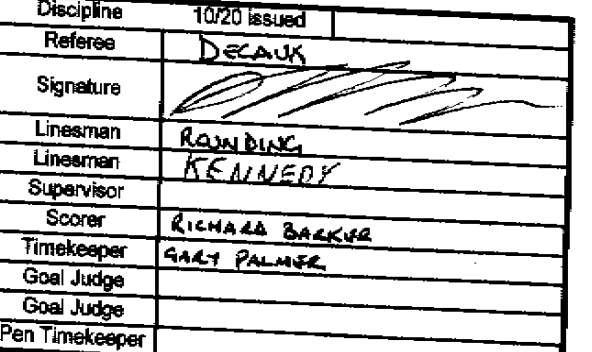 Discipline 10/20 issued
Referee
Signature
Linesman ROUNDING
Linesman KENNEDY
Supervisor
Scorer RICHARD BARKER
Timekeeper GARY PALMER
Goal Judge
Goal Judge
Pen Timekeeper